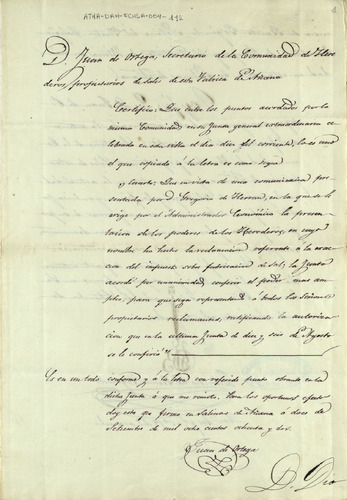 ATHA-DAH-ECHLA-004-112
1
D. Juan de Ortega, Secretario de la Comunidad de Here
deros, propietarios de sales de esta Fabrica de Añana
Certifico: Que entre los puntos acordados por la
misma Comunidad en su Junta general extraordinaria ce
lebrada en esta villa el dia diez del corriente, hay uno
el que copiado á la letra es como sigue
y cuarto: Que en vista de una comunicacion pre
sentada por Gregorio de Herran, en la que se le
exige por el Administrador Económico la presen
tacion de los poderes de los Herederos, en cuyo
nombre ha hecho la reclamacion referente á la exac
cion del impuesto sobre fabricacion de sal; la Junta
acordó por unanimidad, conferir el poder mas am
plio, para que siga representando á todos los Señores
propietarios reclamantes, ratificando la autoriza
cion que en la ultima Junta de diez y seis de Agosto
se le confirió.
Es en un todo conforme y á la letra con referido punto obrante en la
dicha Junta á que me remito. Para los oportunos efectos
doy esta que firmo en Salinas de Añana á doce de
Setiembre de mil ocho cientos ochenta y dos.
Juan de Ortega
D. Dio